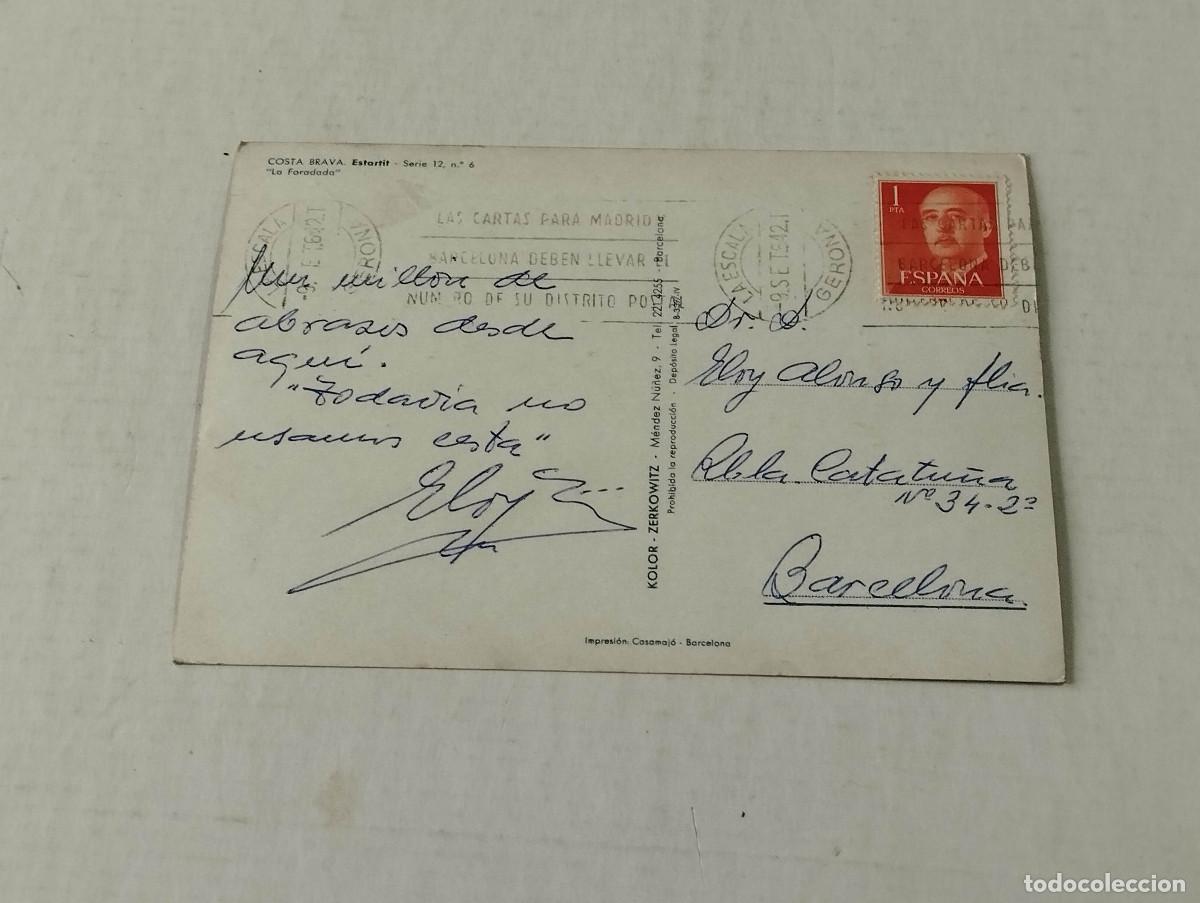 COSTA BRAVA. Estartit - Serie 12, n.º 6
"La Foradada"
LA ESCALA
GERONA
LAS CARTAS PARA MADRID
BARCELONA DEBEN LLEVAR EL
NUMERO DE SU DISTRITO POSTAL
Un millon de
abrazos desde
aquí.
"Todavia no
usamos esta"
Eloy
KOLOR - ZERKOWITZ - Méndez Núñez, 9 - Tel. 221 4255 - Barcelona
Prohibida la reproducción - Depósito Legal
LA ESCALA
GERONA
1
PTA
ESPAÑA
CORREOS
LAS CARTAS PA
BARCELONA DEB
Sr. D.
Eloy Alonso y flia.
Rbla. Cataluña
Nº 34-2º
Barcelona
Impresión: Casamajó - Barcelona
todocoleccion